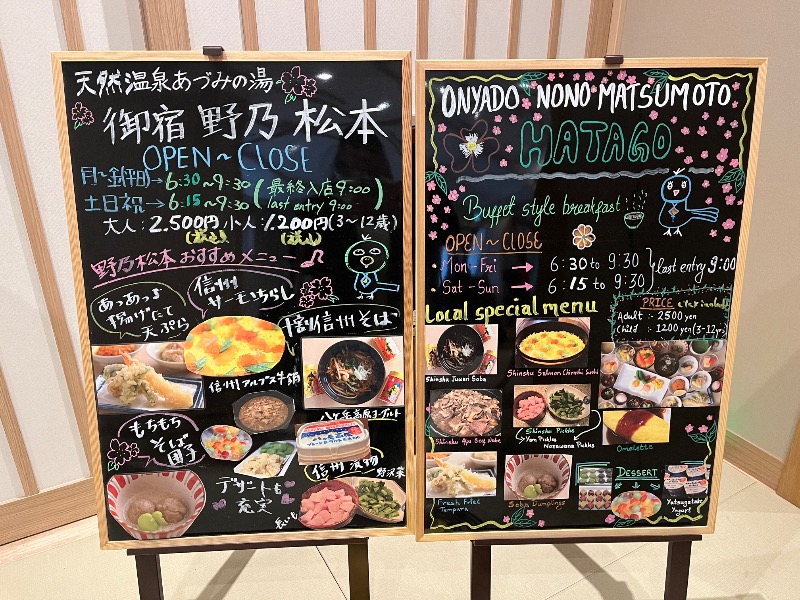 天然温泉あづみの湯
御宿 野乃 松本
OPEN~CLOSE
月~金(平日)→ 6:30~9:30
土日祝→ 6:15~9:30
(最終入店9:00)
last entry 9:00
大人:2.500円 小人:1.200円(3~12歳)
(税込) (税込)
野乃松本おすすめメニュー♪
あっあっよ
揚げたて
天ぷら
信州
サーモンちらし
十割信州そば
信州アルプス牛鍋
八ヶ岳高原ヨーグルト
もちもち
そば
団子
デザートも
充実
信州漬物
野沢菜
長いも
ONYADO NONO MATSUMOTO
HATAGO
Buffet style breakfast
OPEN~CLOSE
Mon-Fri → 6:30 to 9:30
Sat-Sun → 6:15 to 9:30
last entry 9:00
PRICE (tax included)
Adult :- 2500 yen
Child :- 1200 yen (3-12yrs)
Local special menu
Shinshu Juwari Soba
Shinshu Salmon Chirashi Sushi
Shinshu Alps Beef Nabe
Shinshu Pickles
Yam Pickles
Nozawana Pickles
Omelette
Fresh Fried
Tempura
Soba Dumplings
DESSERT
Yatsugatake
Yogurt